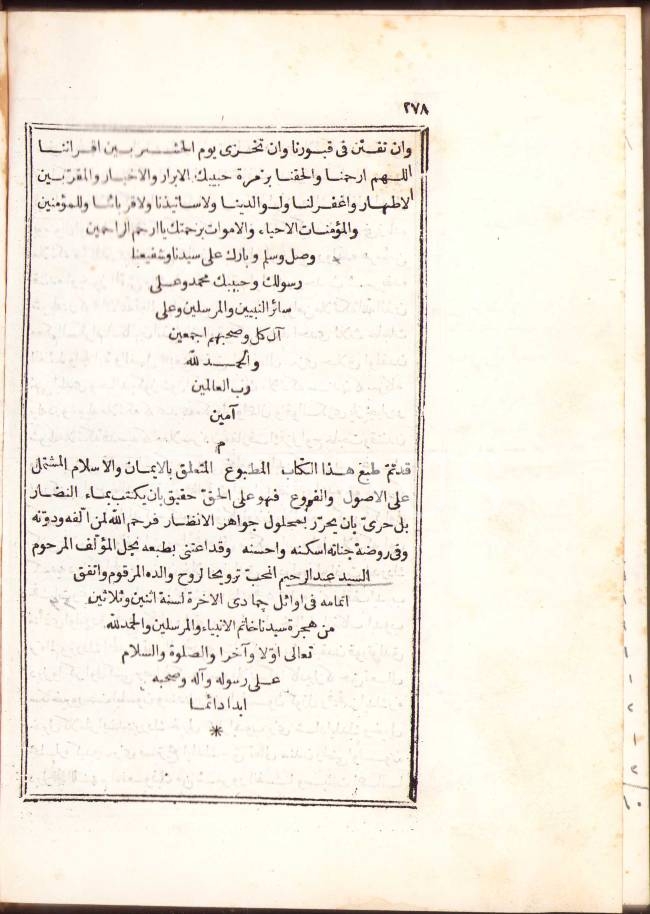 ٢٧٨
وان تفتن فى قبورنا وان تخزى يوم الحشر بين اقراننا
اللهم ارحمنا والحقنا بزمرة حبيبك الابرار والاخيار والمقربين
الاطهار واغفر لنا ولوالدينا ولاساتيذنا ولاقربائنا وللمؤمنين
والمؤمنات الاحياء والاموات برحمتك يا ارحم الراحمين
وصل وسلم وبارك على سيدنا وشفيعنا
رسولك وحبيبك محمد وعلى
سائر النبيين والمرسلين وعلى
آل كل وصحبهم اجمعين
والحمد لله
رب العالمين
آمين
م
قد تم طبع هذا الكتاب المطبوع المتعلق بالايمان والاسلام المشتمل
على الاصول والفروع فهو على الحق حقيق بان يكتب بماء النضار
بل حرىّ بان يحرّر بمحلول جواهر الانظار فرحم الله لمن الفه ودوّنه
وفى روضة جنانه اسكنه واحسنه وقد اعتنى بطبعه نجل المؤلف المرحوم
السيد عبد الرحيم المحب ترويحا لروح والده المرقوم واتفق
اتمامه فى اوائل جمادى الاخرة لسنة اثنين وثلاثين
من هجرة سيدنا خاتم الانبياء والمرسلين والحمد لله
تعالى اوّلا وآخرا والصلوة والسلام
على رسوله وآله وصحبه
ابدا دائما
*